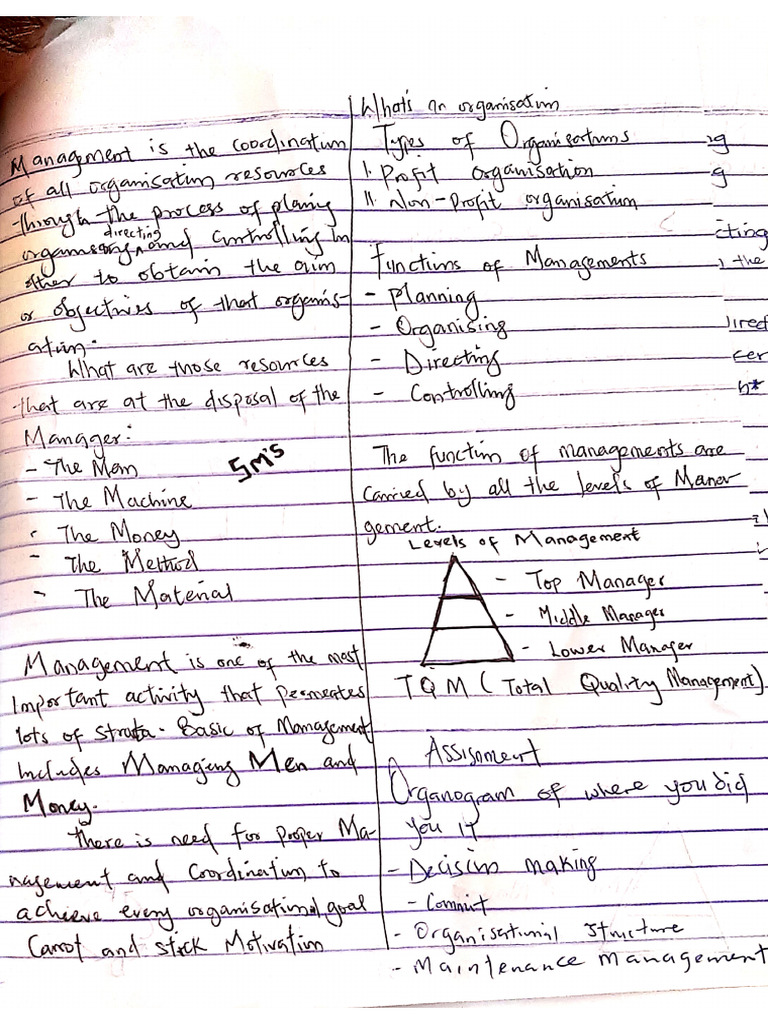 Management is the coordination
of all organisation resources
through the process of planing
directing
organising and controlling in
other to obtain the aim
or objectives of that organis-
ation.
What are those resources
that are at the disposal of the
Manager:
- The Men
5M's
- The Machine
- The Money
- The Method
- The Material
Management is one of the most
important activity that permeates
lots of strata. Basic of Management
includes Managing Men and
Money.
There is need for proper Ma-
nagement and Coordination to
achieve every organisational goal
Carrot and stick Motivation
What's an organisation
Types of Organisations
I. Profit organisation
II. Non-Profit organisation
Functions of Managements
- Planning
- Organising
- Directing
- Controlling
The function of managements are
carried by all the levels of Mana-
gement.
Levels of Management
- Top Manager
- Middle Manager
- Lower Manager
TQM (Total Quality Management)
Assignment
Organogram of where you did
you IT
- Decision making
- Commit
- Organisational structure
- Maintenance management
ig
g
cting
the
irect
cer